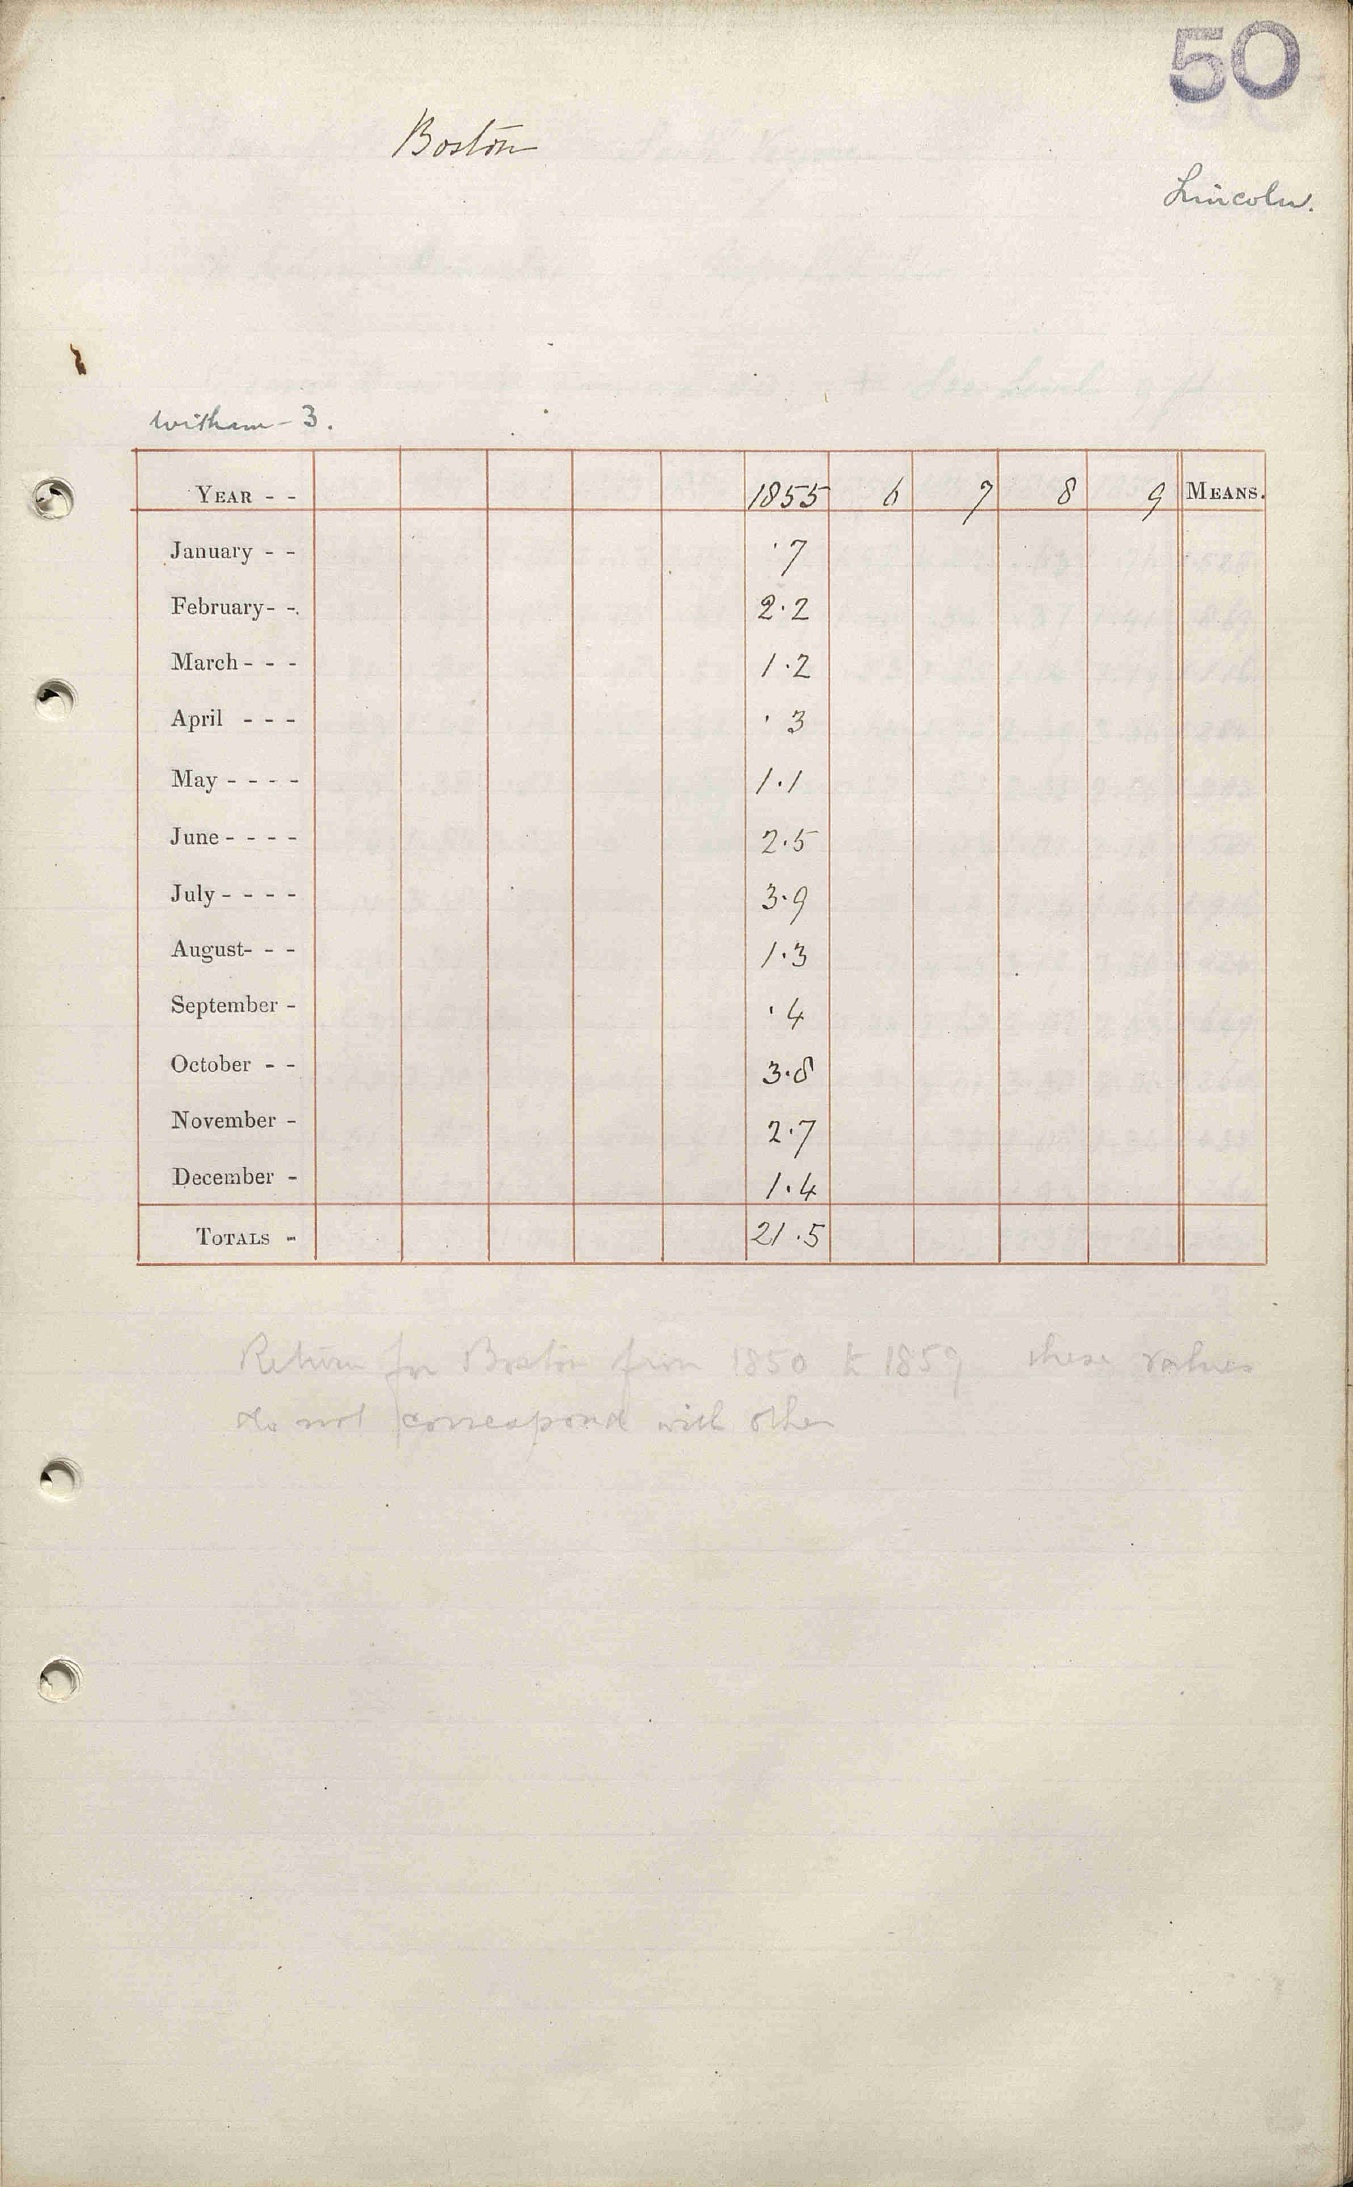 50
Boston
Lincoln.
Witham - 3.
YEAR - - 1855 6 7 8 9 MEANS.
January - - ·7
February - - 2·2
March - - - 1·2
April - - - ·3
May - - - - 1·1
June - - - - 2·5
July - - - - 3·9
August - - - 1·3
September - ·4
October - - 3·8
November - 2·7
December - 1·4
TOTALS - 21·5
Return for Boston from 1850 to 1859 these values
do not correspond with other